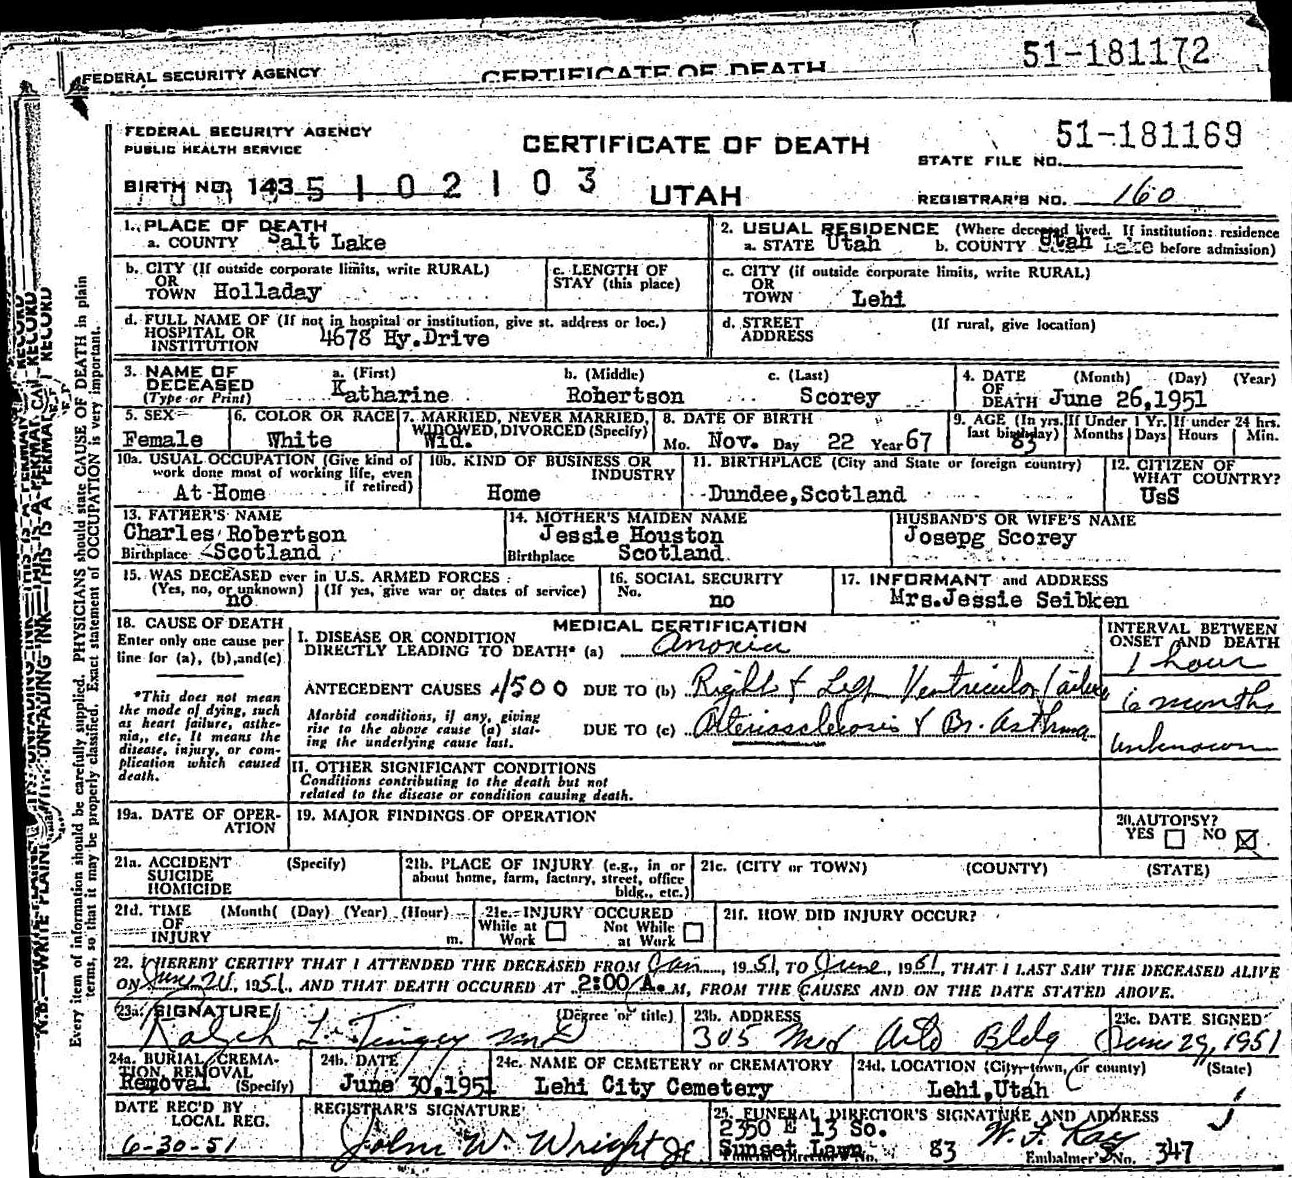 51-181172
FEDERAL SECURITY AGENCY CERTIFICATE OF DEATH
FEDERAL SECURITY AGENCY
PUBLIC HEALTH SERVICE
CERTIFICATE OF DEATH
51-181169
STATE FILE NO.
BIRTH NO. 143 5 1 0 2 1 0 3
UTAH
REGISTRAR'S NO. 160
1. PLACE OF DEATH
a. COUNTY Salt Lake
2. USUAL RESIDENCE (Where deceased lived. If institution: residence before admission)
a. STATE Utah b. COUNTY Utah
b. CITY (If outside corporate limits, write RURAL)
OR
TOWN Holladay
c. LENGTH OF
STAY (this place)
c. CITY (if outside corporate limits, write RURAL)
OR
TOWN Lehi
d. FULL NAME OF (If not in hospital or institution, give st. address or loc.)
HOSPITAL OR
INSTITUTION 4678 Hy.Drive
d. STREET (If rural, give location)
ADDRESS
3. NAME OF
DECEASED
(Type or Print)
a. (First) b. (Middle) c. (Last)
Katharine Robertson Scorey
4. DATE (Month) (Day) (Year)
OF
DEATH June 26,1951
5. SEX
Female
6. COLOR OR RACE
White
7. MARRIED, NEVER MARRIED,
WIDOWED, DIVORCED (Specify)
Wid.
8. DATE OF BIRTH
Mo. Nov. Day 22 Year 67
9. AGE (In yrs. last birthday) 83
If Under 1 Yr. Months Days
If under 24 hrs. Hours Min.
10a. USUAL OCCUPATION (Give kind of
work done most of working life, even
if retired)
At Home
10b. KIND OF BUSINESS OR
INDUSTRY
Home
11. BIRTHPLACE (City and State or foreign country)
Dundee,Scotland
12. CITIZEN OF
WHAT COUNTRY?
UsS
13. FATHER'S NAME
Charles Robertson
Birthplace Scotland
14. MOTHER'S MAIDEN NAME
Jessie Houston
Birthplace Scotland
HUSBAND'S OR WIFE'S NAME
Josepg Scorey
15. WAS DECEASED ever in U.S. ARMED FORCES
(Yes, no, or unknown) (If yes, give war or dates of service)
no
16. SOCIAL SECURITY
No. no
17. INFORMANT and ADDRESS
Mrs.Jessie Seibken
18. CAUSE OF DEATH
Enter only one cause per
line for (a), (b),and(c)
*This does not mean
the mode of dying, such
as heart failure, asthe-
nia,, etc. It means the
disease, injury, or com-
plication which caused
death.
MEDICAL CERTIFICATION
I. DISEASE OR CONDITION
DIRECTLY LEADING TO DEATH* (a) Anoxia
ANTECEDENT CAUSES 4500 DUE TO (b) Right & Left Ventricular failure
Morbid conditions, if any, giving
rise to the above cause (a) stat-
ing the underlying cause last.
DUE TO (c) Arteriosclerosis & Br. Asthma
INTERVAL BETWEEN
ONSET AND DEATH
1 hour
6 months
unknown
II. OTHER SIGNIFICANT CONDITIONS
Conditions contributing to the death but not
related to the disease or condition causing death.
19a. DATE OF OPER-
ATION
19. MAJOR FINDINGS OF OPERATION
20. AUTOPSY?
YES NO
21a. ACCIDENT (Specify)
SUICIDE
HOMICIDE
21b. PLACE OF INJURY (e.g., in or
about home, farm, factory, street, office
bldg., etc.)
21c. (CITY or TOWN) (COUNTY) (STATE)
21d. TIME (Month( (Day) (Year) (Hour)
OF
INJURY m.
21e. INJURY OCCURED
While at Work Not While at Work
21f. HOW DID INJURY OCCUR?
22. I HEREBY CERTIFY THAT I ATTENDED THE DECEASED FROM Jan, 1951, TO June, 1951, THAT I LAST SAW THE DECEASED ALIVE
ON June, 1951, AND THAT DEATH OCCURED AT 2:00 A. M, FROM THE CAUSES AND ON THE DATE STATED ABOVE.
23a. SIGNATURE (Degree or title)
Ralph L. Tingey MD
23b. ADDRESS
305 Med Arts Bldg
23c. DATE SIGNED
June 29, 1951
24a. BURIAL, CREMA-
TION, REMOVAL
Removal (Specify)
24b. DATE
June 30,1951
24c. NAME OF CEMETERY or CREMATORY
Lehi City Cemetery
24d. LOCATION (City, town, or county) (State)
Lehi,Utah
DATE REC'D BY
LOCAL REG.
6-30-51
REGISTRAR'S SIGNATURE
John W. Wright Jr
25. FUNERAL DIRECTOR'S SIGNATURE AND ADDRESS
2350 E 13 So.
Sunset Lawn 83
Embalmer's No. 347
N.B.—WRITE PLAINLY WITH UNFADING INK—THIS IS A PERMANENT RECORD
Every item of information should be carefully supplied. PHYSICIANS should state CAUSE OF DEATH in plain
terms, so that it may be properly classified. Exact statement of OCCUPATION is very important.